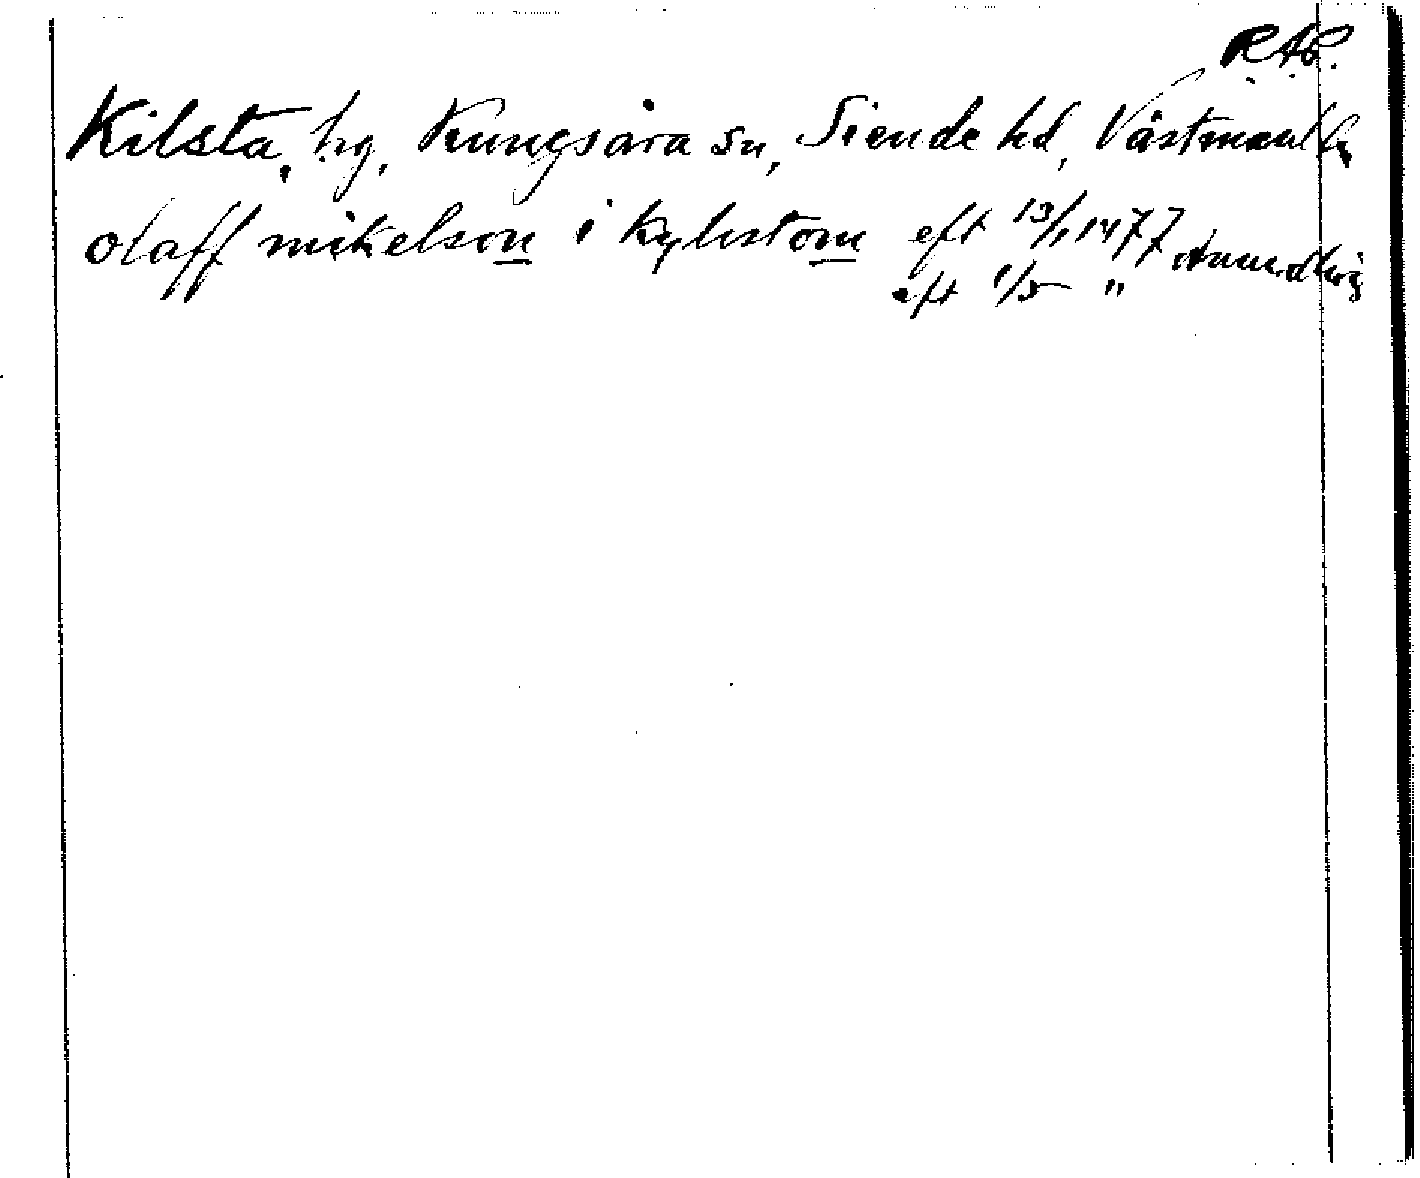 R.A.P.
Kilsta, hg, Kungsåra sn, Siende hd, Västmanl
olaff mikelson i kylistom eft 13/1 1477
eft 1/5 "